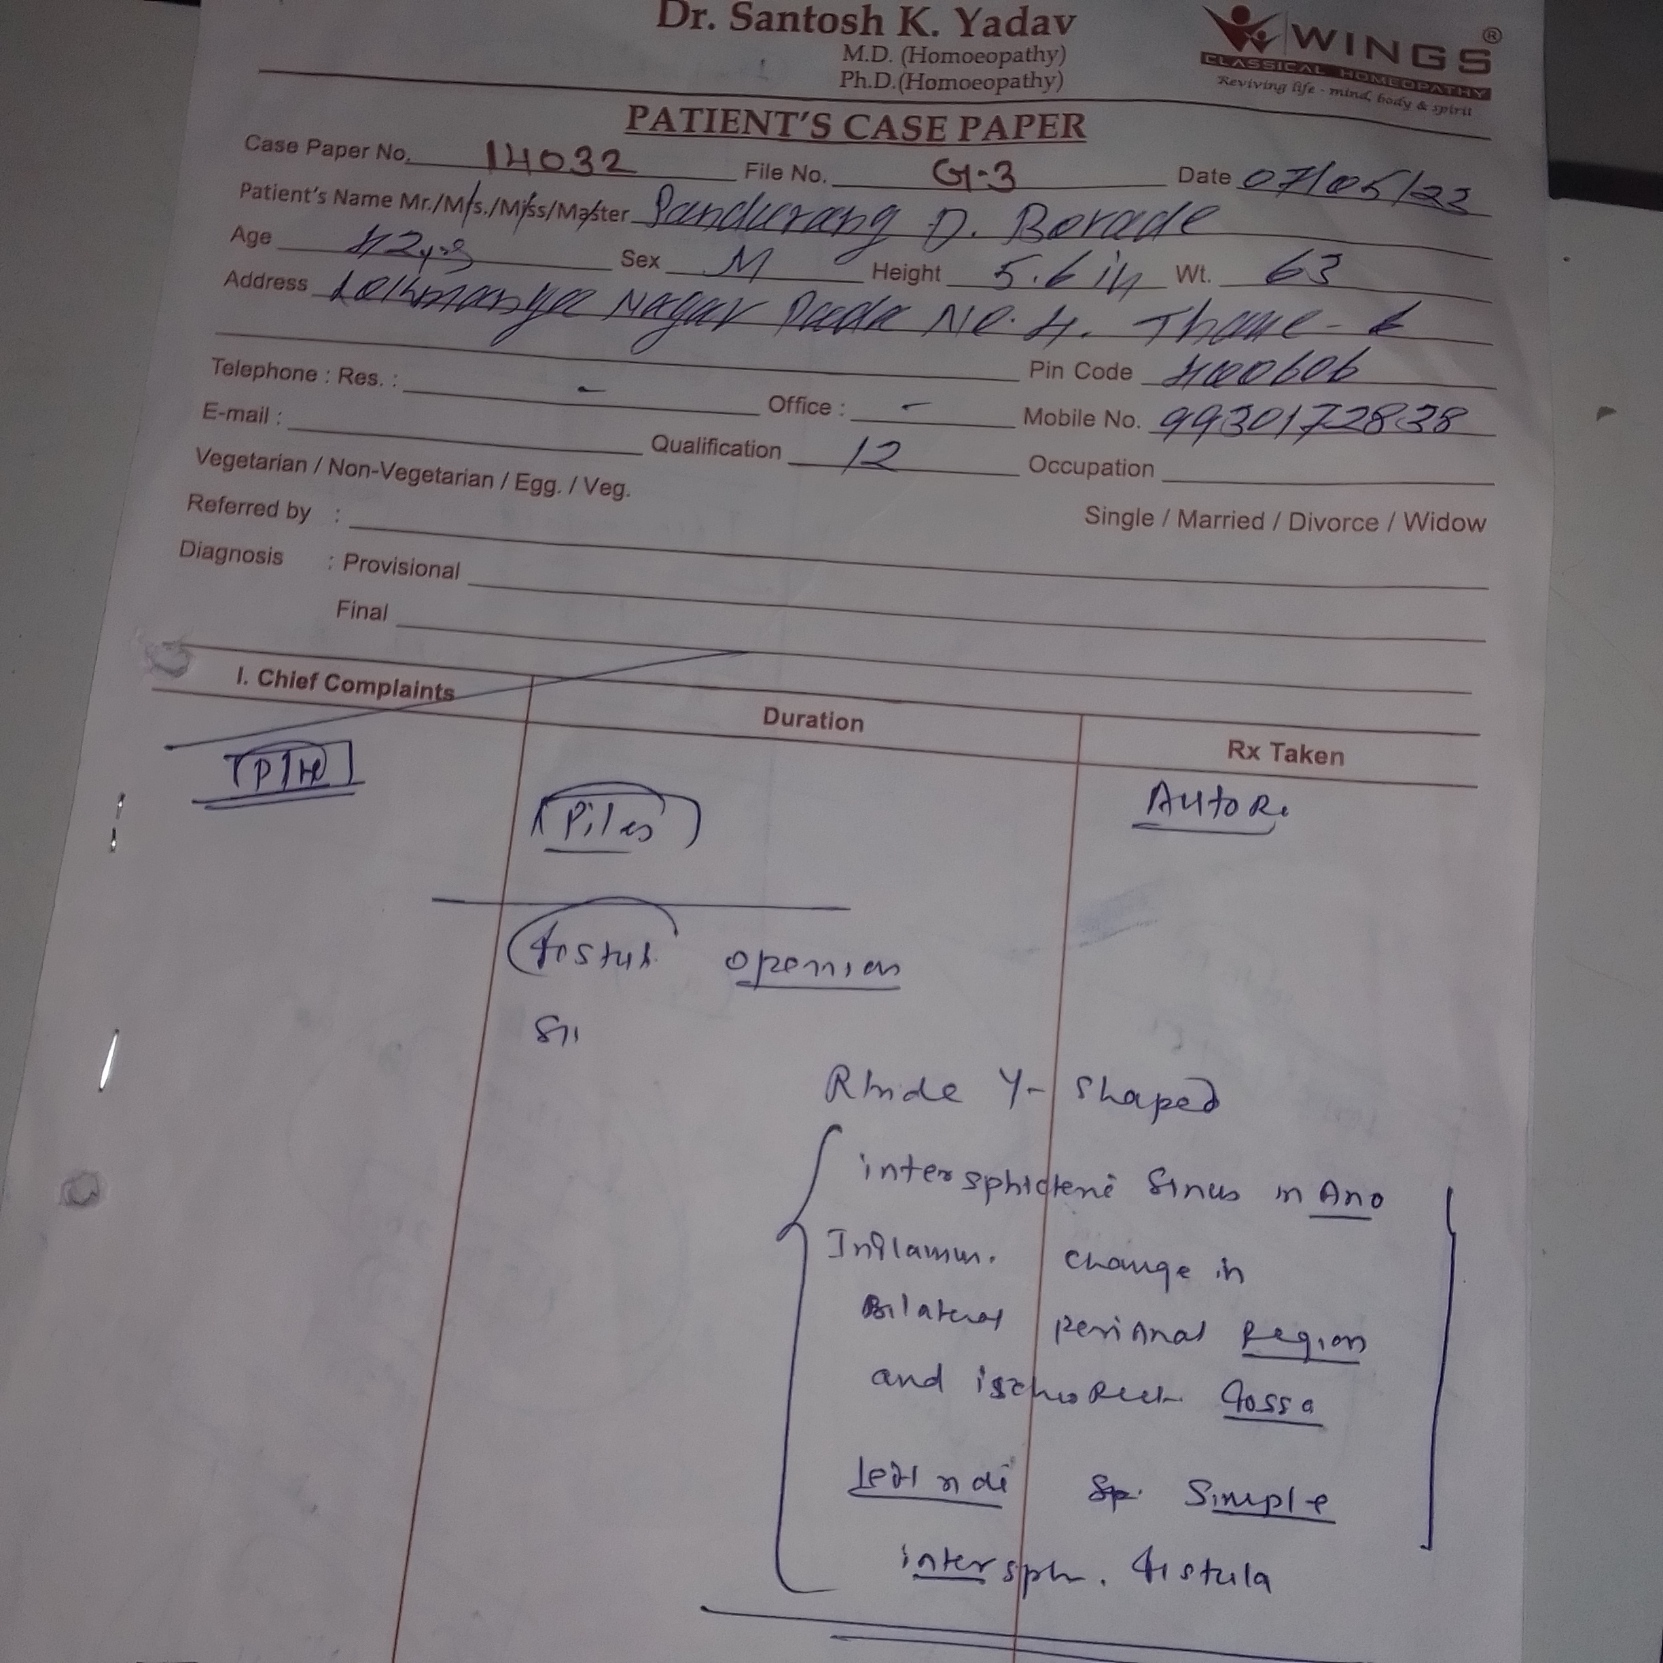 Dr. Santosh K. Yadav
M.D. (Homoeopathy)
Ph.D.(Homoeopathy)
WINGS®
CLASSICAL HOMEOPATHY
Reviving life - mind, body & spirit
PATIENT'S CASE PAPER
Case Paper No. 14032 File No. G-3 Date 07/05/23
Patient's Name Mr./M/s./Miss/Master Pandurang D. Borade
Age 42 yrs Sex M Height 5.6 in Wt. 63
Address Lokmanya Nagar Pada No. 4. Thane-
Pin Code 400606
Telephone : Res. : - Office : - Mobile No. 9930172838
E-mail : Qualification 12 Occupation
Vegetarian / Non-Vegetarian / Egg. / Veg.
Single / Married / Divorce / Widow
Referred by :
Diagnosis : Provisional
Final
I. Chief Complaints Duration Rx Taken
Piles
openion
Y- Shaped
Sinus in Ano
Inflamm. change in
Bilateral perianal Region
and fossa
Simple
intersph. fistula